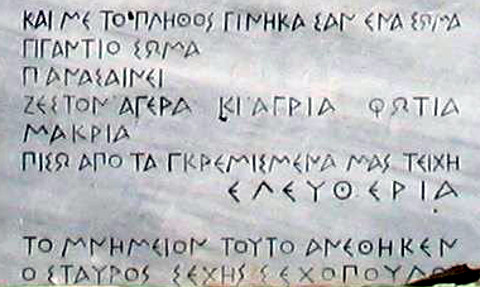 ΚΑΙ ΜΕ ΤΟ ΠΛΗΘΟΣ ΓΙΝΗΚΑ ΣΑΝ ΕΝΑ ΣΩΜΑ
ΓΙΓΑΝΤΙΟ ΣΩΜΑ
Π ΑΝΑΣΑΙΝΕΙ
ΖΕΣΤΟΝ ΑΓΕΡΑ ΚΙ ΑΓΡΙΑ ΦΩΤΙΑ
ΜΑΚΡΙΑ
ΠΙΣΩ ΑΠΟ ΤΑ ΓΚΡΕΜΙΣΜΕΝΑ ΜΑΣ ΤΕΙΧΗ
ΕΛΕΥΘΕΡΙΑ
ΤΟ ΜΝΗΜΕΙΟΝ ΤΟΥΤΟ ΑΝΕΘΗΚΕΝ
Ο ΣΤΑΥΡΟΣ ΣΕΧΗΣ ΣΕΧΟΠΟΥΛΟΣ